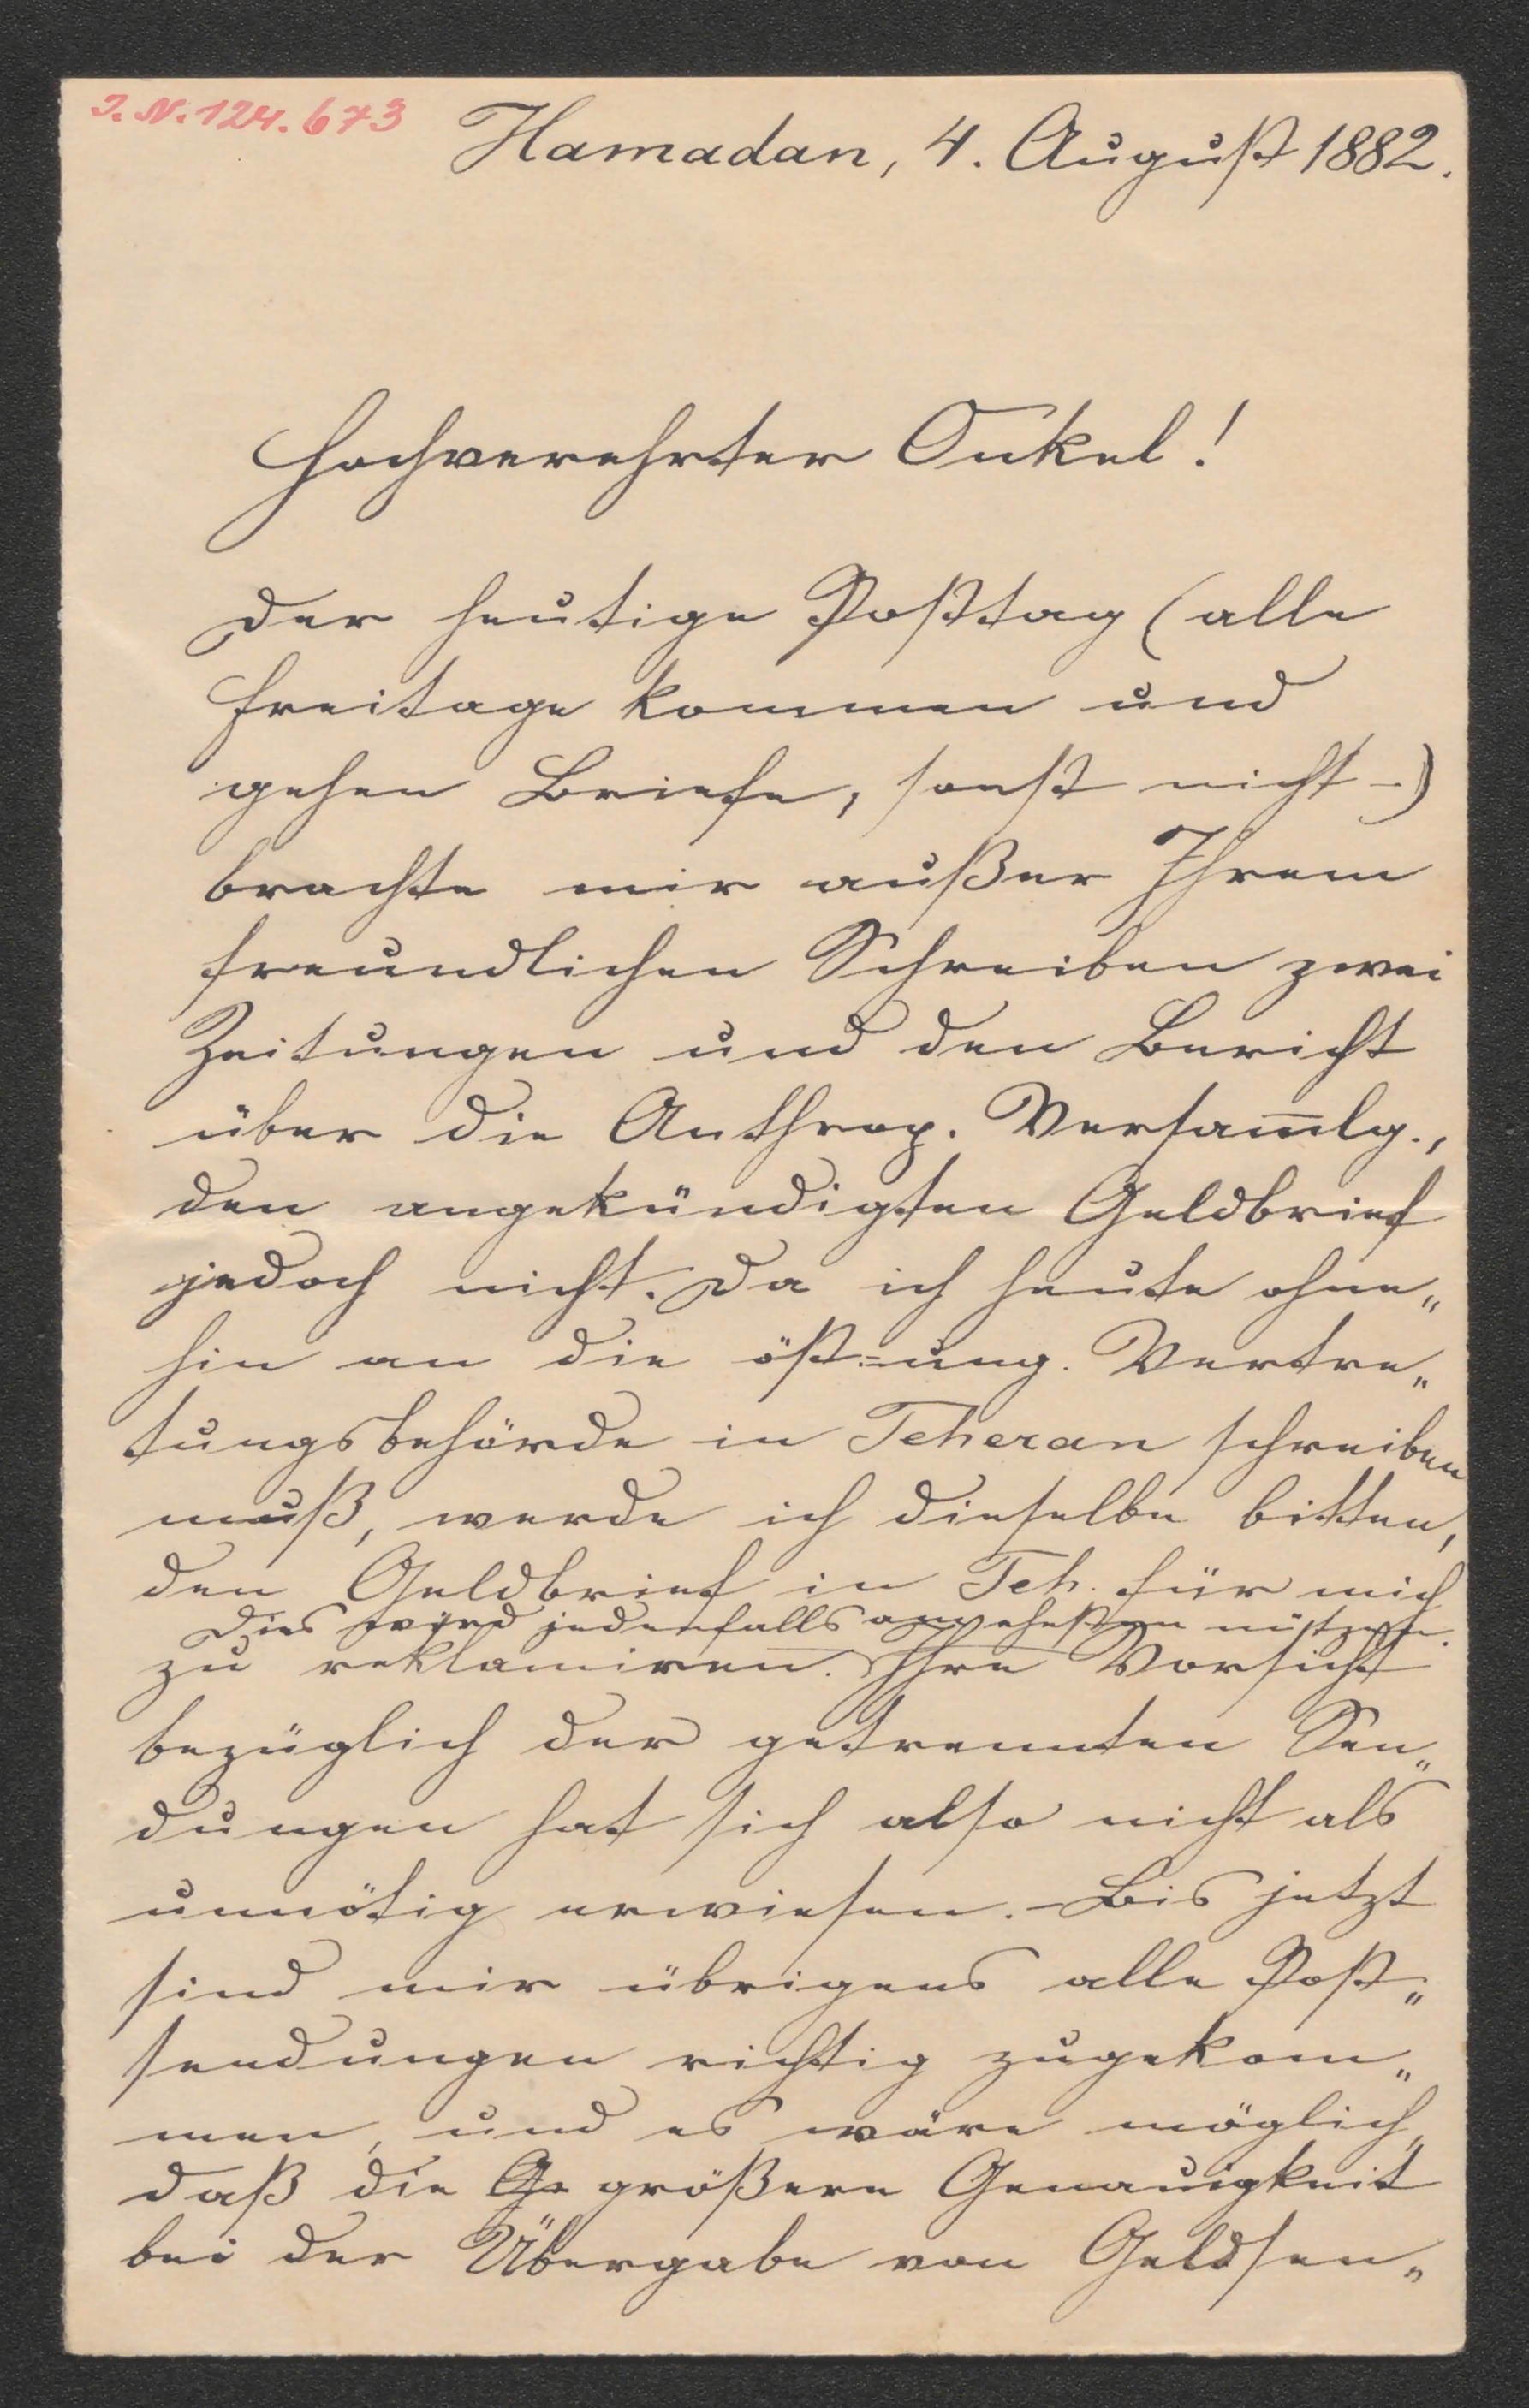 J. N. 124.673
Hamadan, 4. August 1882.
Hochverehrter Onkel!
Der heutige Posttag (alle
Freitage kommen und
gehen Briefe, sonst nicht -)
brachte mir außer Ihrem
freundlichen Schreiben zwei
Zeitungen und den Bericht
über die Anthrop. Versam̅lg.,
den angekündigten Geldbrief
jedoch nicht. Da ich heute ohne„
hin an die öst=ung. Vertre„
tungsbehörde in Teheran schreiben
muß, werde ich dieselbe bitten,
den Geldbrief in Teh. für mich
Dies wird jedenfalls am ehesten nützen.
zu reklamiren. Ihre Vorsicht
bezüglich der getrennten Sen„
dungen hat sich also nicht als
unnötig erwiesen. - Bis jetzt
sind mir übrigens alle Post„
sendungen richtig zugekom„
men, und es wäre möglich,
daß die Ge größere Genauigkeit
bei der Übergabe von Geldsen„